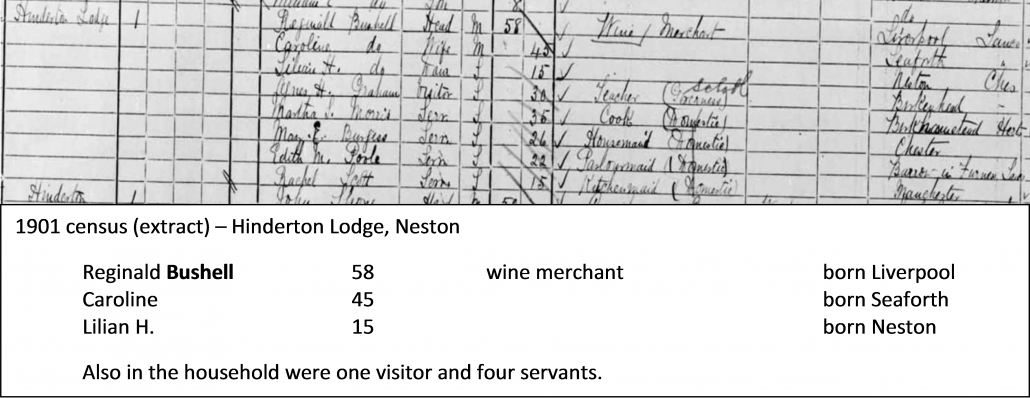 Hinderton Lodge 1 Reginald Bushell Head M 58 Wine Merchant Liverpool
Caroline do Wife M 45 Seaforth
Lilian H. do S 15 Neston Ches
Graham Visitor S 30 Teacher Birkenhead
Martha Morris Serv S 36 Cook (Domestic) Berkhamstead
May E. Burgess Serv S 26 Housemaid (Domestic) Chester
Edith M. Poole Serv S 22 Parlourmaid (Domestic) Barrow-in-Furness
Rachel Scott Serv S 15 Kitchenmaid (Domestic) Manchester
Hinderton 1
1901 census (extract) – Hinderton Lodge, Neston
Reginald Bushell 58 wine merchant born Liverpool
Caroline 45 born Seaforth
Lilian H. 15 born Neston
Also in the household were one visitor and four servants.